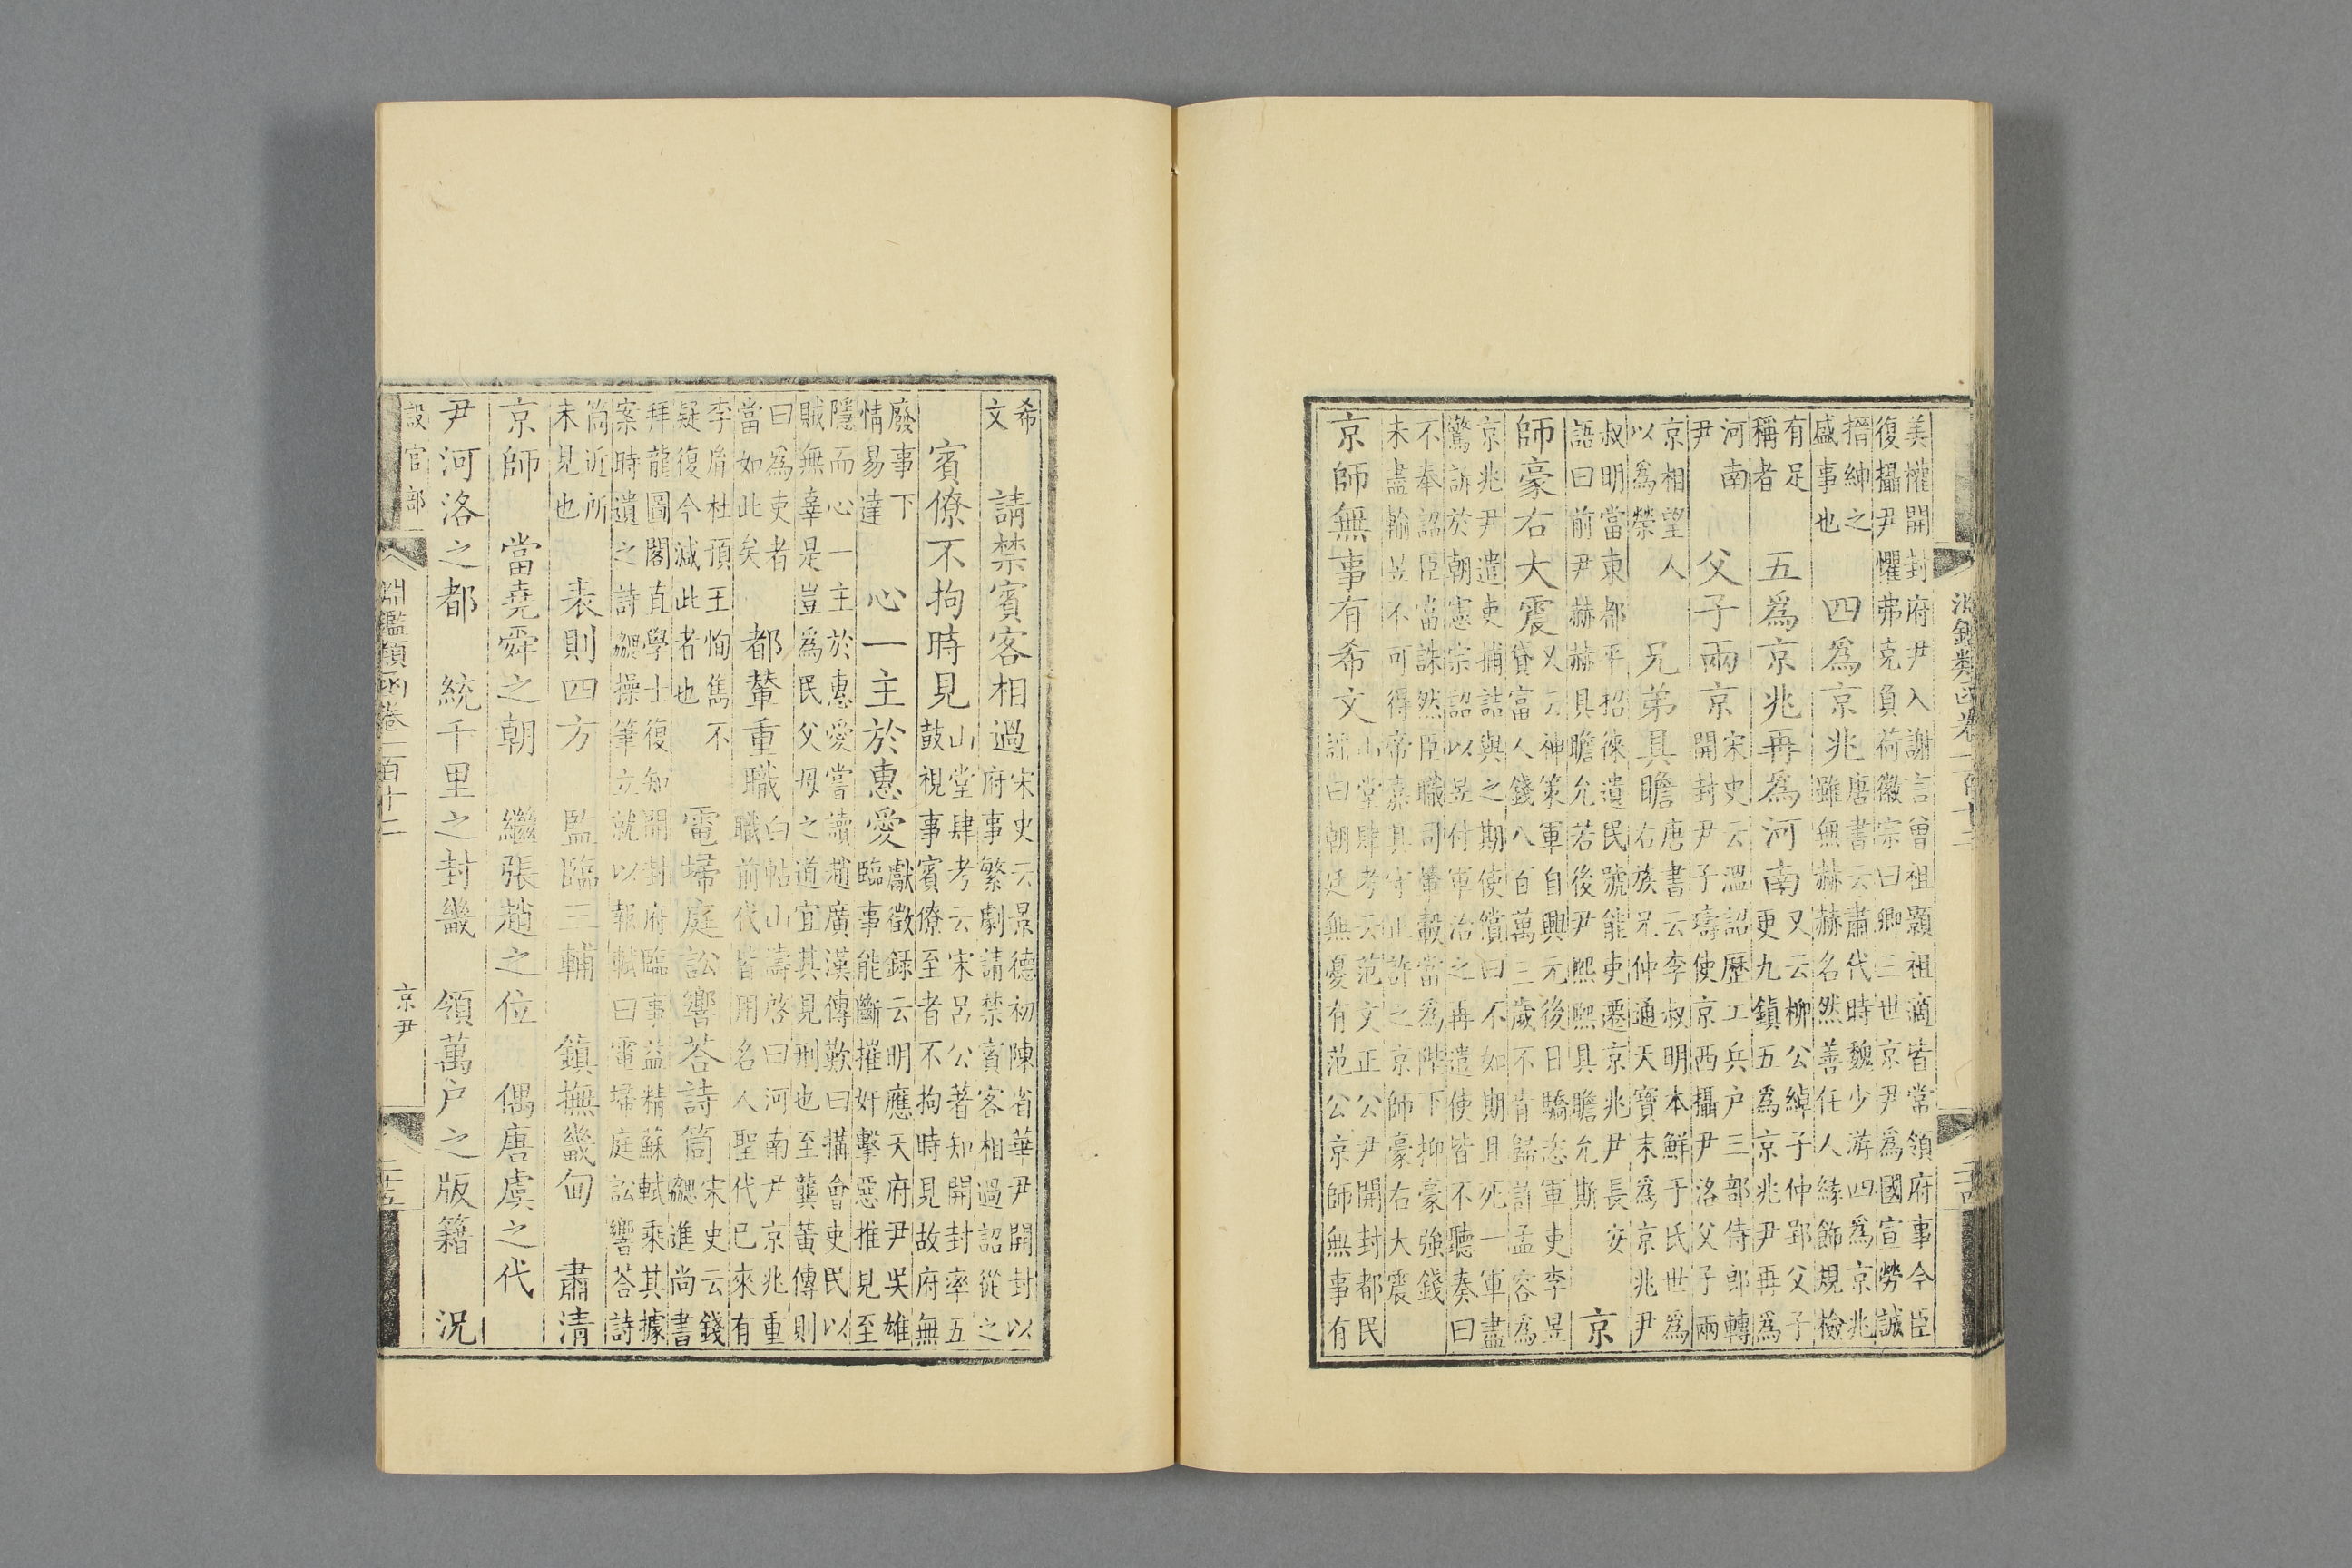 淵鑑類函卷一百十二
二十四
美權開封府尹入謝言曾祖顥祖適皆常領府事今臣
復攝尹懼弗克負荷徽宗曰卿三世京尹爲國宣勞誠
搢紳之
盛事也
四爲京兆
唐書云肅代時魏少游四爲京兆
雖無赫赫名然善任人緣飾規檢
有足
稱者
五爲京兆再爲河南
又云柳公綽子仲郢父子
更九鎮五爲京兆尹再爲
河南
尹
父子兩京
宋史云溫詔歷工兵户三部侍郎轉
開封尹子壽使京西攝尹洛父子兩
京相望人
以爲榮
兄弟具瞻
唐書云李叔明本鮮于氏世爲
右族兄仲通天寶末爲京兆尹
叔明當東都平招徠遺民號能吏遷京兆尹長安
語曰前尹赫赫具瞻允若後尹熙熙具瞻允斯
京
師豪右大震
又云神策軍自興元後日驕恣軍吏李昱
貸富人錢八百萬三歲不肯歸許孟容爲
京兆尹遣吏捕詰與之期使償曰不如期且死一軍盡
驚訴於朝憲宗詔以昱付軍治之再遣使皆不聽奏曰
不奉詔臣當誅然臣職司輦轂當爲陛下抑豪強錢
未盡輸昱不可得帝嘉其守正許之京師豪右大震
京師無事有希文
山堂肆考云范文正公尹開封都民
謠曰朝廷無憂有范公京師無事有
希
文
請禁賓客相過
宋史云景德初陳省華尹開封以
府事繁劇請禁賓客相過詔從之
賓僚不拘時見
山堂肆考云宋呂公著知開封率五
鼓視事賓僚至者不拘時見故府無
廢事下
情易達
心一主於惠愛
獻徵錄云明應天府尹吳雄
臨事能斷摧奸擊惡推見至
隱而心一主於惠愛嘗讀趙廣漢傳歎曰搆會吏民以
賊無辜是豈爲民父母之道宜其見刑也至龔黃傳則
曰爲吏者
當如此矣
都輦重職
白帖山濤啓曰河南尹京兆重
職前代皆用名人聖代已來有
李胤杜預王恂雋不
疑復今減此者也
電埽庭訟響荅詩筒
宋史云錢
勰進尚書
拜龍圖閣直學士復知開封府臨事益精蘇軾乘其據
案時遺之詩勰操筆立就以報軾曰電埽庭訟響荅詩
筒近所
未見也
表則四方　監臨三輔　鎮撫畿甸　肅清
京師　當堯舜之朝　繼張趙之位　偶唐虞之代
尹河洛之都　統千里之封畿　領萬户之版籍　況
設官部
淵鑑類函卷一百十二
京尹
二十五